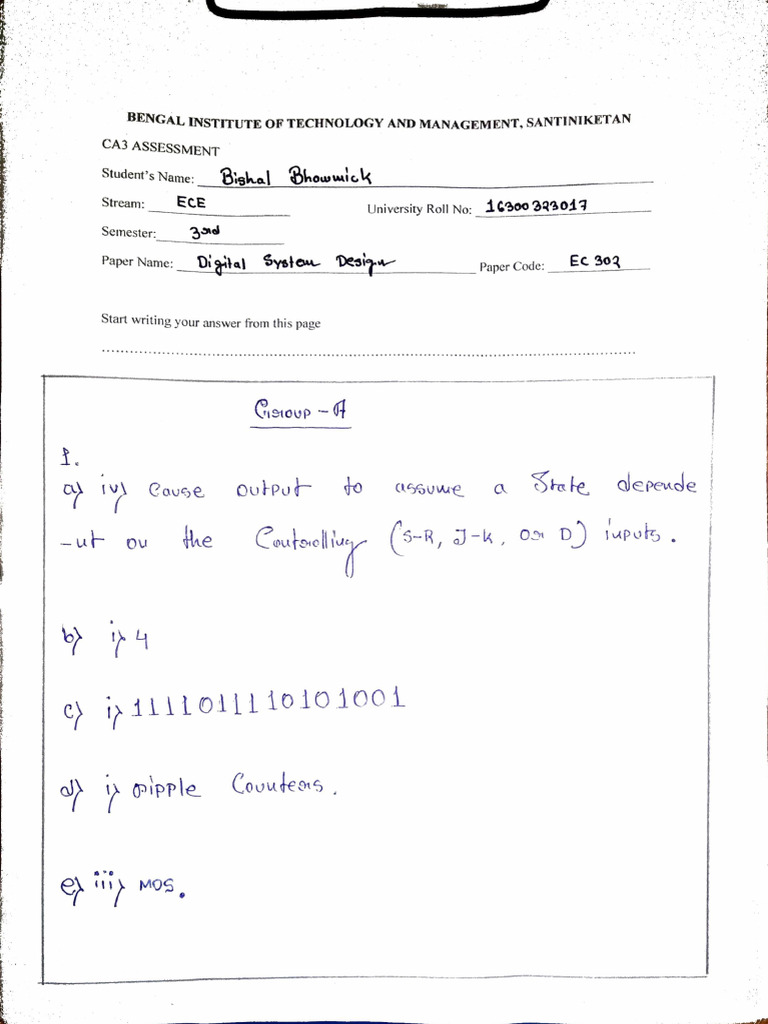 BENGAL INSTITUTE OF TECHNOLOGY AND MANAGEMENT, SANTINIKETAN
CA3 ASSESSMENT
Student's Name: Bishal Bhowmick
Stream: ECE University Roll No: 16300323017
Semester: 3rd
Paper Name: Digital System Design Paper Code: EC 302
Start writing your answer from this page
Group - A
1.
a) iv) Cause output to assume a State depende
-nt on the Controlling (S-R, J-K, or D) inputs.
b) i) 4
c) i) 1111011110101001
d) i) ripple Counters.
e) iii) MOS.